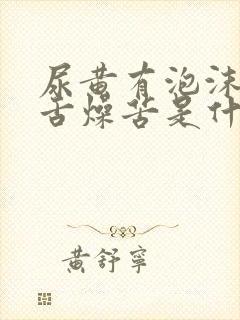 尿黄有泡沫
舌燥苦是什
黄舒宁